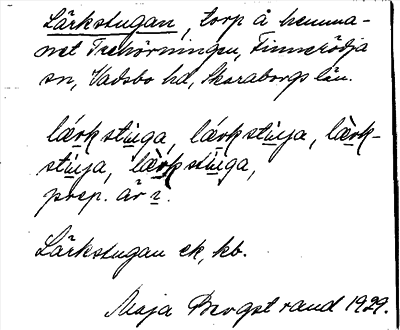 Lärkstugan, torp å hemma-
net Trehörningen, Finnerödja
sn, Vadsbo hd, Skaraborgs län.
lǽrkstùga, lǽrkstùja, lǽrk-
stùja, lǽrkstùga,
prep. är i.
Lärkstugan ek, kb.
Maja Bergstrand 1929.